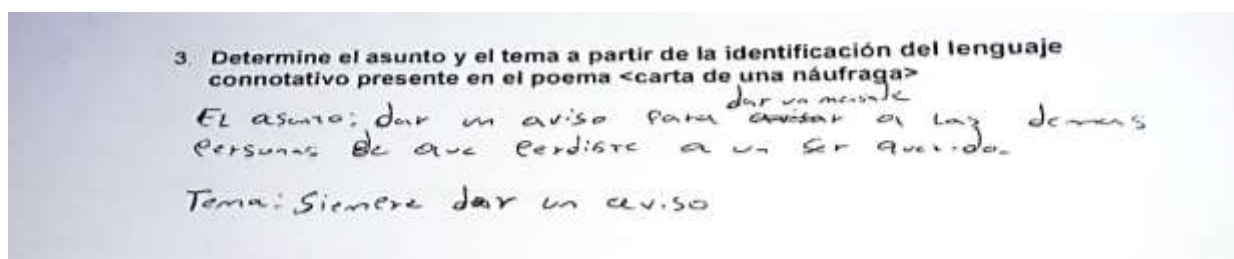 3 Determine el asunto y el tema a partir de la identificación del lenguaje
connotativo presente en el poema <carta de una náufraga>
dar un mensaje
EL asunto: dar un aviso para avisar a Laz demas
Personas de que Perdiste a un ser querido.
Tema: Siempre dar un aviso